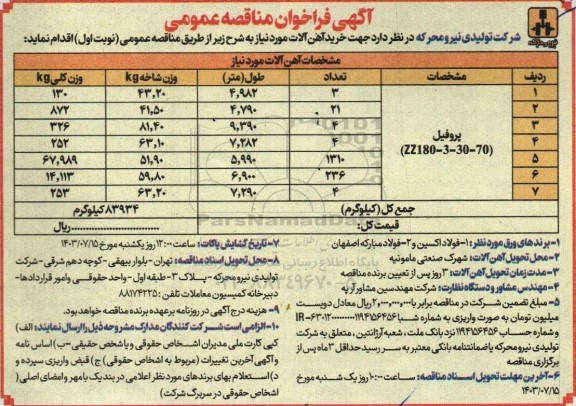 آگهی فراخوان مناقصه عمومی
شرکت تولیدی نیرو محرکه در نظر دارد جهت خرید آهن آلات مورد نیاز به شرح زیر از طریق مناقصه عمومی (نوبت اول) اقدام نماید:
مشخصات آهن آلات مورد نیاز
ردیف مشخصات تعداد طول(متر) وزن شاخه kg وزن کلی kg
۱ ۳ ۴,۹۸۲ ۴۳,۲۰ ۱۳۰
۲ ۲۱ ۴,۷۹۰ ۴۱,۵۰ ۸۷۲
۳ ۴ ۹,۳۹۰ ۸۱,۴۰ ۳۲۶
۴ پروفیل ۴ ۷,۲۸۲ ۶۳,۱۰ ۲۵۲
(ZZ180-3-30-70)
۵ ۱۳۱۰ ۵,۹۹۰ ۵۱,۹۰ ۶۷,۹۸۹
۶ ۲۳۶ ۶,۹۰۰ ۵۹,۸۰ ۱۴,۱۱۳
۷ ۴ ۷,۲۹۰ ۶۳,۲۰ ۲۵۳
جمع کل (کیلوگرم) ۸۳۹۳۴ کیلوگرم
قیمت کل: ریال
۱- برندهای ورق مورد نظر: ۱-فولاد اکسین و ۲-فولاد مبارکه اصفهان
۲- محل تحویل آهن آلات: شهرک صنعتی مامونیه
۳- مدت زمان تحویل آهن آلات: ۳ روز پس از تعیین برنده مناقصه
۴- مهندس مشاور و دستگاه نظارت: شرکت مهندسین مشاور آریه
۵- مبلغ تضمین شرکت در مناقصه برابر با ۲,۰۰۰,۰۰۰,۰۰۰ ریال معادل دویست
میلیون تومان به صورت واریزی به شماره شبا
و شماره حساب ۱۱۹۴۵۶۴۵۶ نزد بانک ملت، شعبه آرژانتین، متعلق به شرکت
تولیدی نیرو محرکه یا ضمانتنامه بانکی معتبر به سر رسید حداقل ۳ ماه پس از
برگزاری مناقصه
۶- آخرین مهلت تحویل اسناد مناقصه: ساعت ۱۰:۰۰ روز یک شنبه مورخ
۱۴۰۳/۰۷/۱۵
۷- تاریخ گشایش پاکات: ساعت ۱۲:۰۰ روز یکشنبه مورخ ۱۴۰۳/۰۷/۱۵
۸- محل تحویل اسناد مناقصه: تهران - بلوار بیهقی - کوچه دهم شرقی - شرکت
تولیدی نیرو محرکه - پلاک ۳ - طبقه اول - واحد حقوقی و امور قراردادها -
دبیرخانه کمیسیون معاملات تلفن: ۸۸۱۷۴۲۲۵
۹- هزینه درج آگهی در روزنامه برعهده برنده مناقصه خواهد بود.
۱۰- الزامی است شرکت کنندگان مدارک مشروحه ذیل را ارسال نمایند: الف)
کپی کارت ملی مدیران اشخاص حقوقی و یا شخص حقیقی - ب) اساس نامه
و آگهی آخرین تغییرات (مربوط به اشخاص حقوقی) ج) قبض واریزی سپرده و
د) استعلام بهای برندهای مورد نظر اعلامی در بند یک با مهر و امضای اصلی (
اشخاص حقوقی در سربرگ شرکت)
ParsNamadData